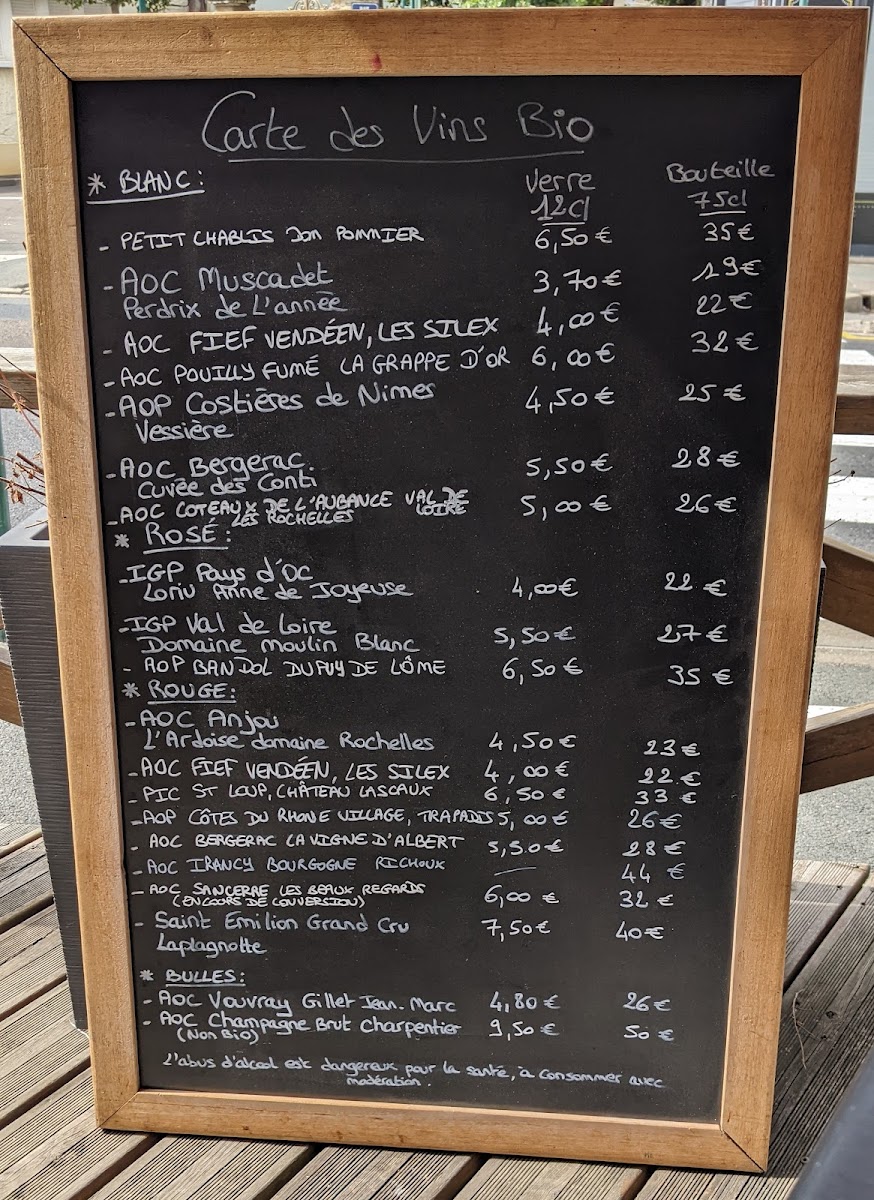 Carte des Vins Bio
* BLANC: Verre 12cl Bouteille 75cl
- PETIT CHABLIS Dom POMMIER 6,50€ 35€
- AOC Muscadet 3,70€ 19€
Perdrix de L'année
- AOC FIEF VENDÉEN, LES SILEX 4,00€ 22€
- AOC POUILLY FUMÉ LA GRAPPE D'OR 6,00€ 32€
- AOP Costières de Nimes 4,50€ 25€
Vessière
- AOC Bergerac 5,50€ 28€
Cuvée des Conti
- AOC COTEAUX DE L'AUBANCE VAL DE LOIRE 5,00€ 26€
LES ROCHELLES
* ROSÉ:
- IGP Pays d'OC
Loriu Anne de Joyeuse 4,00€ 22€
- IGP Val de Loire
Domaine moulin Blanc 5,50€ 27€
- AOP BANDOL DUPUY DE LÔME 6,50€ 35€
* ROUGE:
- AOC Anjou
L'Ardoise domaine Rochelles 4,50€ 23€
- AOC FIEF VENDÉEN, LES SILEX 4,00€ 22€
- PIC ST LOUP, CHÂTEAU LASCAUX 6,50€ 33€
- AOP CÔTES DU RHONE VILLAGE, TRAPADIS 5,00€ 26€
- AOC BERGERAC LA VIGNE D'ALBERT 5,50€ 28€
- AOC IRANCY BOURGOGNE RICHOUX — 44€
- AOC SANCERRE LES BEAUX REGARDS 6,00€ 32€
(EN COURS DE CONVERSION)
- Saint Emilion Grand Cru 7,50€ 40€
Laplagnotte
* BULLES:
- AOC Vouvray Gillet Jean-Marc 4,80€ 26€
- AOC Champagne Brut Charpentier 9,50€ 50€
(Non Bio)
L'abus d'alcool est dangereux pour la santé, à consommer avec
modération.